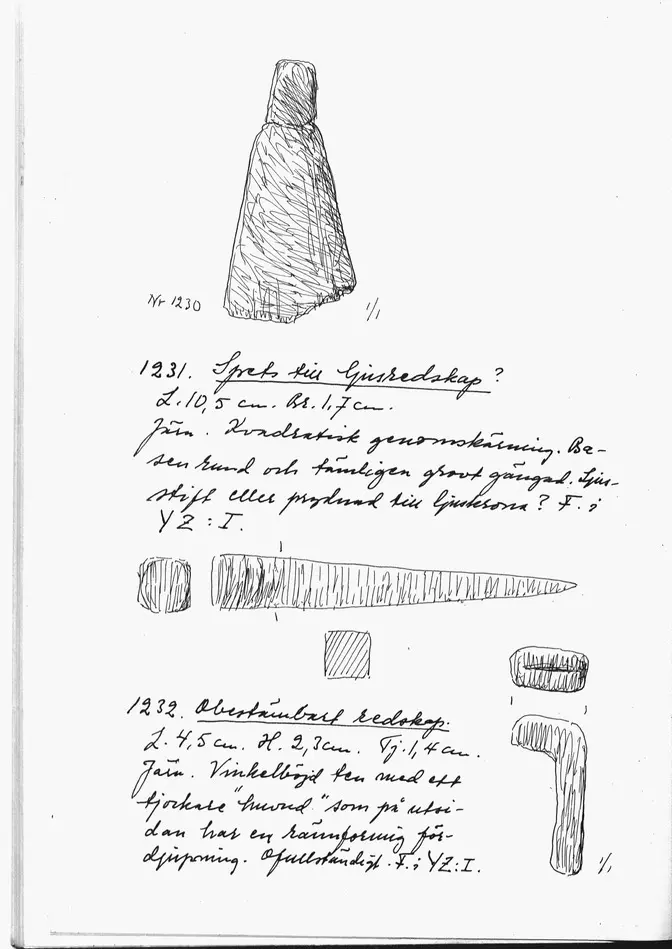 Nr 1230
1/1
1231. Spets till ljusredskap?
L. 10,5 cm. Br. 1,7 cm.
Järn. Kvadratisk genomskärning. Ba-
sen rund och tämligen grovt gängad. Ljus-
stift eller prydnad till ljuskrona? F. i
YZ : I.
1232. Obestämbart redskap.
L. 4,5 cm. H. 2,3 cm. Tj. 1,4 cm.
Järn. Vinkelböjd ten med ett
tjockare "huvud" som på utsi-
dan har en rännformig för-
djupning. Ofullständigt. F. i YZ : I.
1/1